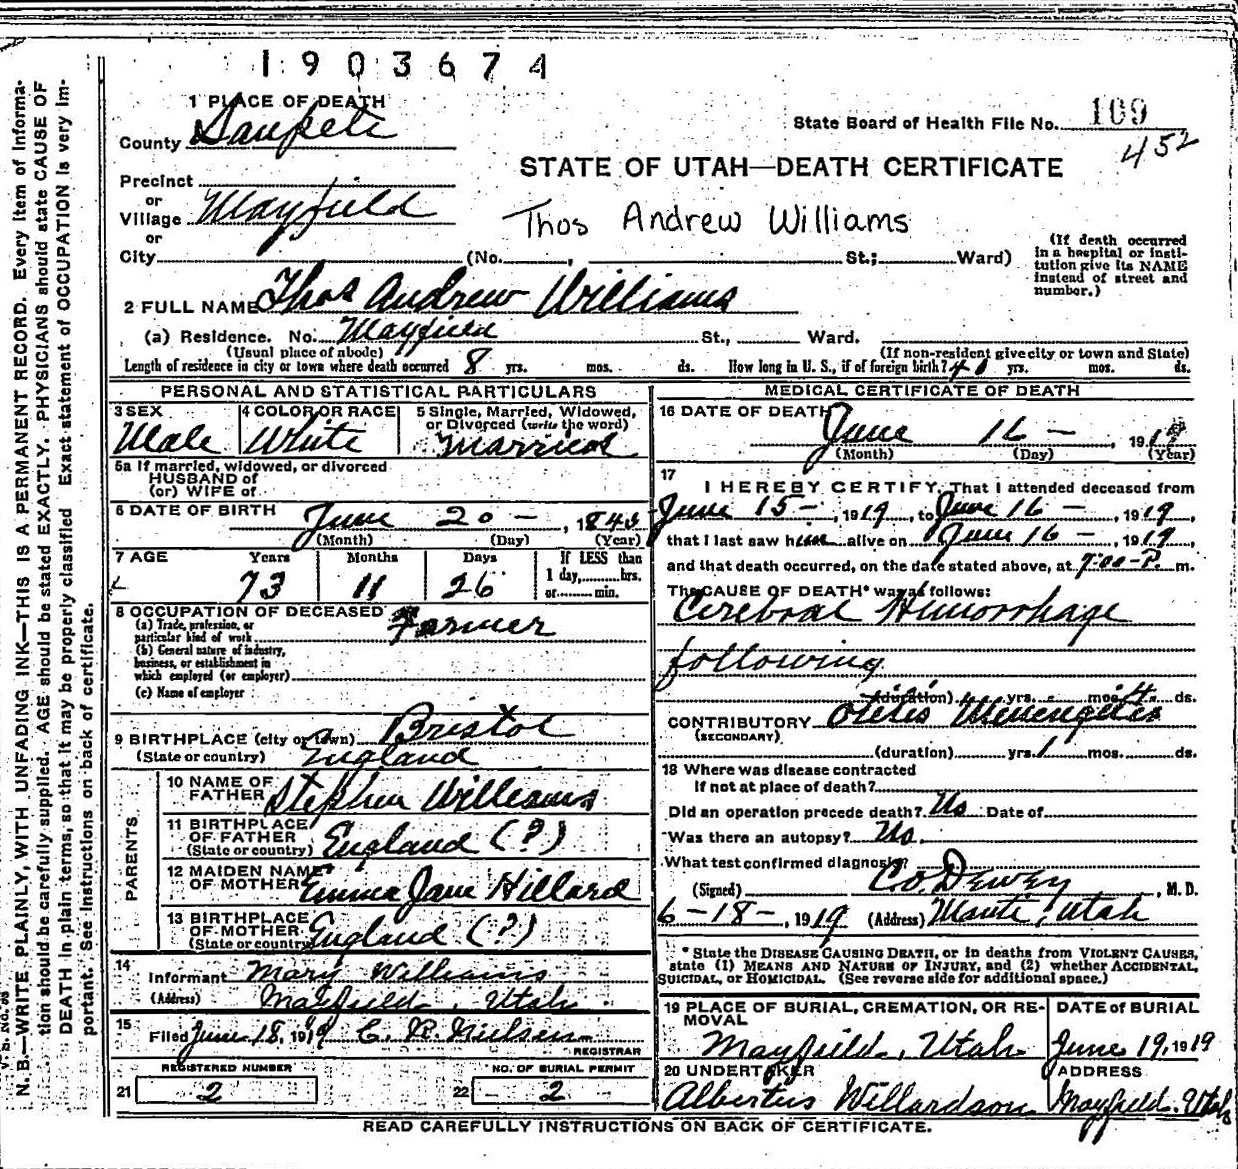 1903674
1 PLACE OF DEATH
County Sanpete
State Board of Health File No. 109
452
STATE OF UTAH—DEATH CERTIFICATE
Precinct
or
Village Mayfield
Thos Andrew Williams
or
City (No. , St.; Ward)
(If death occurred in a hospital or institution give its NAME instead of street and number.)
2 FULL NAME Thos Andrew Williams
(a) Residence. No. Mayfield St., Ward.
(Usual place of abode) (If non-resident give city or town and State)
Length of residence in city or town where death occurred 8 yrs. mos. ds. How long in U. S., if of foreign birth? yrs. mos. ds.
PERSONAL AND STATISTICAL PARTICULARS
3 SEX 4 COLOR OR RACE 5 Single, Married, Widowed, or Divorced (write the word)
Male White Married
5a If married, widowed, or divorced
HUSBAND of
(or) WIFE of
6 DATE OF BIRTH June 20 - , 184
(Month) (Day) (Year)
7 AGE Years Months Days If LESS than
73 11 26 1 day,........hrs.
or........min.
8 OCCUPATION OF DECEASED Farmer
(a) Trade, profession, or
particular kind of work
(b) General nature of industry,
business, or establishment in
which employed (or employer)
(c) Name of employer
9 BIRTHPLACE (city or town) Bristol
(State or country) England
PARENTS
10 NAME OF FATHER Stephen Williams
11 BIRTHPLACE OF FATHER (State or country) England (?)
12 MAIDEN NAME OF MOTHER Emma Jane Hillard
13 BIRTHPLACE OF MOTHER (State or country) England (?)
14
Informant Mary Williams
(Address) Mayfield, Utah
15 Filed June 18, 1919 C. R. Nielsen
REGISTRAR
REGISTERED NUMBER NO. OF BURIAL PERMIT
21 2 22 2
MEDICAL CERTIFICATE OF DEATH
16 DATE OF DEATH
June 16 - , 1919
(Month) (Day) (Year)
17
I HEREBY CERTIFY, That I attended deceased from
June 15 - , 1919, to June 16 - , 1919,
that I last saw him alive on June 16 - , 1919,
and that death occurred, on the date stated above, at 7:00 P. m.
The CAUSE OF DEATH* was as follows:
Cerebral Hemorrhage
following
(duration) yrs. mos. 4 ds.
CONTRIBUTORY Otitis Menengetis
(SECONDARY)
(duration) yrs. 1 mos. ds.
18 Where was disease contracted
If not at place of death?
Did an operation precede death? No Date of
Was there an autopsy? No.
What test confirmed diagnosis?
(Signed) C. O. Dewey , M. D.
6-18-, 1919 (Address) Manti, Utah
* State the DISEASE CAUSING DEATH, or in deaths from VIOLENT CAUSES,
state (1) MEANS AND NATURE OF INJURY, and (2) whether ACCIDENTAL,
SUICIDAL, or HOMICIDAL. (See reverse side for additional space.)
19 PLACE OF BURIAL, CREMATION, OR REMOVAL DATE OF BURIAL
Mayfield, Utah June 19, 1919
20 UNDERTAKER ADDRESS
Albertus Willardson Mayfield, Utah
READ CAREFULLY INSTRUCTIONS ON BACK OF CERTIFICATE.
N. B.—WRITE PLAINLY, WITH UNFADING INK—THIS IS A PERMANENT RECORD. Every item of Informa-
tion should be carefully supplied. AGE should be stated EXACTLY. PHYSICIANS should state CAUSE OF
DEATH in plain terms, so that it may be properly classified. Exact statement of OCCUPATION is very im-
portant. See instructions on back of certificate.